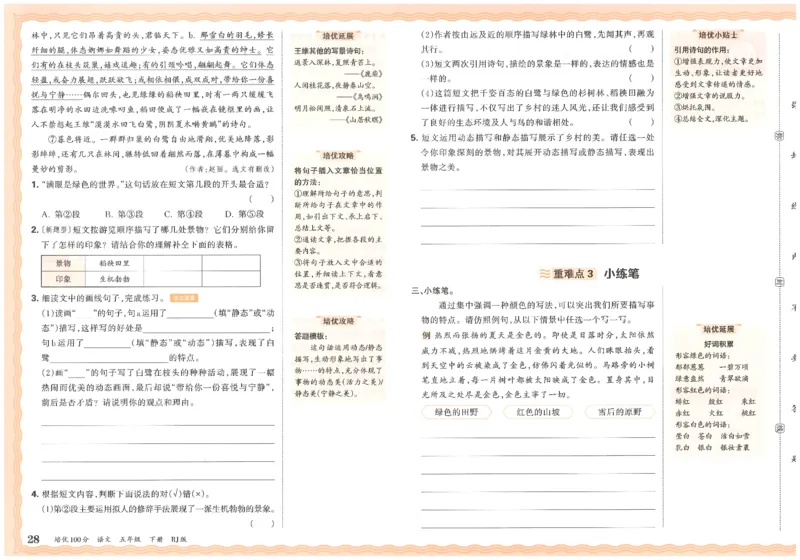 林中,只见它们昂着高贵的头,君临天下。b. 那雪白的羽毛,修长
纤细的腿,体态婀娜如舞蹈的少女,姿态优雅又如高贵的绅士。它
们有的在枝头筑巢,嬉戏逗趣;有的引颈鸣唱,翩翩起舞。它们体态
轻盈,或奋力展翅,跃跃欲飞;或相依相偎,成双成对,带给你一份喜
悦与宁静……偶尔回去,也见绿绿的稻秧田里,时有一两只缓缓飞
落在明净的水田边洗啄叼鱼,稻田便成了一幅嵌在镜框里的画,让
人不禁想起王维“漠漠水田飞白鹭,阴阴夏木啭黄鹂”的诗句。
⑦暮色将近。一群群归巢的白鹭自由地滑翔,优美地降落,影
影绰绰,还有几只在林间,辗转低回着翩然而落,在薄暮中构成一幅
曼妙的剪影。 (作者:赵丽。选文有删改)
1. “满眼是绿色的世界。”这句话放在短文第几段的开头最合适?
( )
A. 第②段 B. 第③段 C. 第④段 D. 第⑤段
2. [新题型]短文按游览顺序描写了哪几处景物?它们分别给你留
下了怎样的印象?请结合你的理解补全下面的表格。
景物 稻秧田里
印象 生机勃勃
3. 细读文中的画线句子,完成练习。
(1)读画“ ”的句子,句a运用了 (填“静态”或“动
态”)描写,这样写的好处是 ;
句b运用了 (填“静态”或“动态”)描写,表现了白
鹭 的特点。
(2)画“ ”的句子写了白鹭在枝头的种种活动,展现了一幅
热闹而优美的动态画面,最后却说“带给你一份喜悦与宁静”,
前后是否矛盾?请说明你的观点和理由。
4. 根据短文内容,判断下面说法的对(√)错(×)。
(1)第②段主要运用拟人的修辞手法展现了一派生机勃勃的景象。
( )
28 培优100分 语文 五年级 下册 RJ版
培优延展
王维其他的写景诗句:
返景入深林,复照青苔上。
——《鹿柴》
人闲桂花落,夜静春山空。
——《鸟鸣涧》
明月松间照,清泉石上流。
——《山居秋暝》
培优攻略
将句子插入文章恰当位置
的方法:
①理解所给句子的意思,判
断所给句子在文章中的作
用,如引出下文、承上启下、
总结上文等。
②通读文章,把握各段的主
要内容。
③将句子放入文中合适的
位置,并细读上下文,看意
思是否连贯,是否符合逻辑。
培优攻略
答题模板:
这句话运用动态/静态
描写,生动形象地写出了事
物……的特点,充分体现了
事物的动态美(活力之美)/
静态美(宁静之美)。
(2)作者按由远及近的顺序描写绿林中的白鹭,先闻其声,再观
其行。 ( )
(3)短文两次引用诗句,描绘的景象是一样的,表达的情感也是
一样的。 ( )
(4)这篇短文把千姿百态的白鹭与绿色的杉树林、稻秧田融为
一体进行描写,不仅写出了乡村的迷人风光,还让我们感受到
了良好的生态环境及人与鸟的和谐相处。 ( )
5. 短文运用动态描写和静态描写展示了乡村的美。请任选一处
令你印象深刻的景物,对其展开动态描写或静态描写,表现出
景物之美。
重难点3 小练笔
三、小练笔。
通过集中强调一种颜色的写法,可以突出我们所要描写事
物的特点。请仿照例句,从以下情景中任选一个写一写。
例 热烈而张扬的夏天是金色的。即使是日落时分,太阳依然
威力不减,热烈地烘烤着这片金黄的大地。人们眯眼抬头,看
到天空中的云被染成了金色,仿佛闪着光似的。马路旁的小树
笔直地立着,每一片树叶都被太阳映成了金色。置身其中,目
光所及之处尽是金色,金色主宰了一切。
绿色的田野 红色的山坡 雪后的原野
培优小贴士
引用诗句的作用:
①增强表现力,使文章更加
生动、形象,让读者更好地
感受到文章传达的情感。
②增强文章的说服力。
③烘托氛围。
④总结全文,深化主题。
培优延展
好词积累
形容绿色的词语:
郁郁葱葱 一碧万顷
绿意盎然 青翠欲滴
形容红色的词语:
绯红 殷红 朱红
赤红 火红 桃红
形容白色的词语:
莹白 苍白 洁白如雪
乳白 银白 银妆素裹